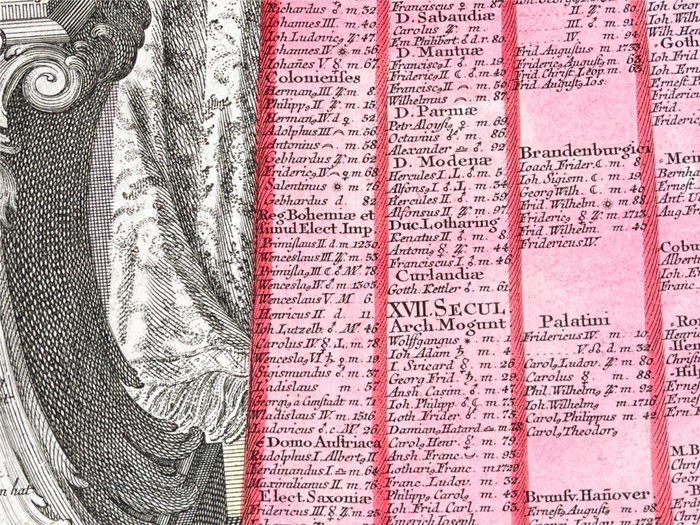 Richardus ♂ m. 32
Iohannes III. m. 40
Ioh. Ludovic. ♃ m. 47
Iohannes IV ☀ m 56
Iohañes V § m 67
Colonienses
Herman III ♃ m. 8.
Philipp II ♃ m. 15.
Herman IV d ♀ m. 52.
Adolphus III ⌢ m. 56
Antonius ⌢ m. 58.
Gebhardus ♃ m. 62
Frideric IV ⌢ ♀ m. 68
Salentinus ☀ m. 76
Gebhardus d. 82
Reg Bohemiæ et
simul Elect. Imp.
Primislaus II. d. m. 1230
Wenceslaus III ♃ m. 53.
Primisla III ☾ M. 78
Wencesla IV ♂ m. 1305
Wenceslaus V M 6
Henricus II d 11.
Ioh. Lutzelb ♂ M. 46
Carolus IV. § ♄. m. 78
Wencesla VI ♄ ♀ m. 19
Sigismundus ♂ m. 37
Ladislaus m 57
Georg à Cunstadt m. 71
Wladislaus IV m. 1516
Ludovicus ♂ c. M. 26
e Domo Austriaca
Rudolphus I Albert II
Ferdinandus I ♎ m. 64
Maximilianus II m.
Elect. Saxoniæ
Fridericus III § m. 25
Franciscus ♀ m.
D. Sabaudiæ
Carolus ♃ m.
Em Philibert ♂ d. 80
D. Mantuæ
Francisc I ♂ m. 19
Frideric II ☾ ♂ m. 40
Francisc II ⌢ m. 50
Wilhelmus ⌢ m. 87
D. Parmæ
Petr Aloysi ♀ m. 69
Octavius ♂ m. 86
Alexander ♎ m. 92
D. Modenæ
Hercules I ♄ ♂ m. 5
Alfons I ♂ ♄ m. 34
Hercules II ♂ m. 59
Alfonsus II ♃ m. 97
Duc. Lotharing
Renatus II ♂ m. 8
Antoni § ♃ m. 44
Franciscus I ♂ m. 46
Curlandiæ
Gotth. Kettler ♂ m. 61
XVII. SECUL
Arch. Mogunt
Wolfgangus ☀ m. 1
Ioh Adam ♄ m. 4
I. Svicard § m. 26
Georg Frid. ♄ m. 29
Ansh. Casim ♂ m. 47
Ioh. Philipp ♂ ☾ m. 73
Loth. Frider ♂ m. 75
Damian Hatard m. 78
Carol. Henr. § m. 79
Ansh. Franc. ⌢ m. 95
Lothari Franc. 1729
Franc. Ludov m. 32
Philipp. Carol m. 43
Emerich Ioseph
II ♂ m. 80
III. ♂ m. 91
IV m. 94
Frid. Augustus m 1733
Frideric August m. 63
Frid. Christ. Leop. m. 63
Frid. August. Ios.
Brandenburgici
Ioach. Frider ☾ m. 8
Ioh. Sigism. ☾ m. 19
Georg Wilh. ☾ m. 40
Frid. Wilhelm. ☀ m 88
Frideric § ♃ m. 1713
Frid. Wilhelm m. 45
Fridericus IV.
Palatini
Fridericus IV. ♂ m. 10
V ☊ d. m. 32
Carol. Ludov ♃ m. 80
Carolus § m. 88
Phil. Wilhelm ♃ m. 92
Ioh. Wilhelm m. 1716
Carol. Philippus m. 42
Carol. Theodor.
Brunsv. Hañover.
Ernest August ♀ m. 98
Ioh. Georg
Wilh.
Ioh. H
Goth
Ioh. Frid
Ioh. Ern
Ernest P
Fridericu
Frid.
Frid.
Mei
Bernha
Ernest
Ant. U
Aug.
Cobu
Albert
Ioh. E